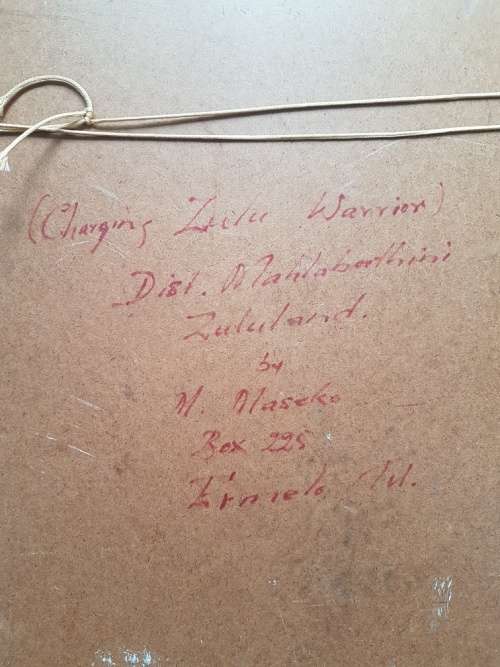 (Charging Zulu Warrior)
Dist. Mahlabathini
Zululand.
by
M. Maseko
Box 225
Ermelo Tvl.